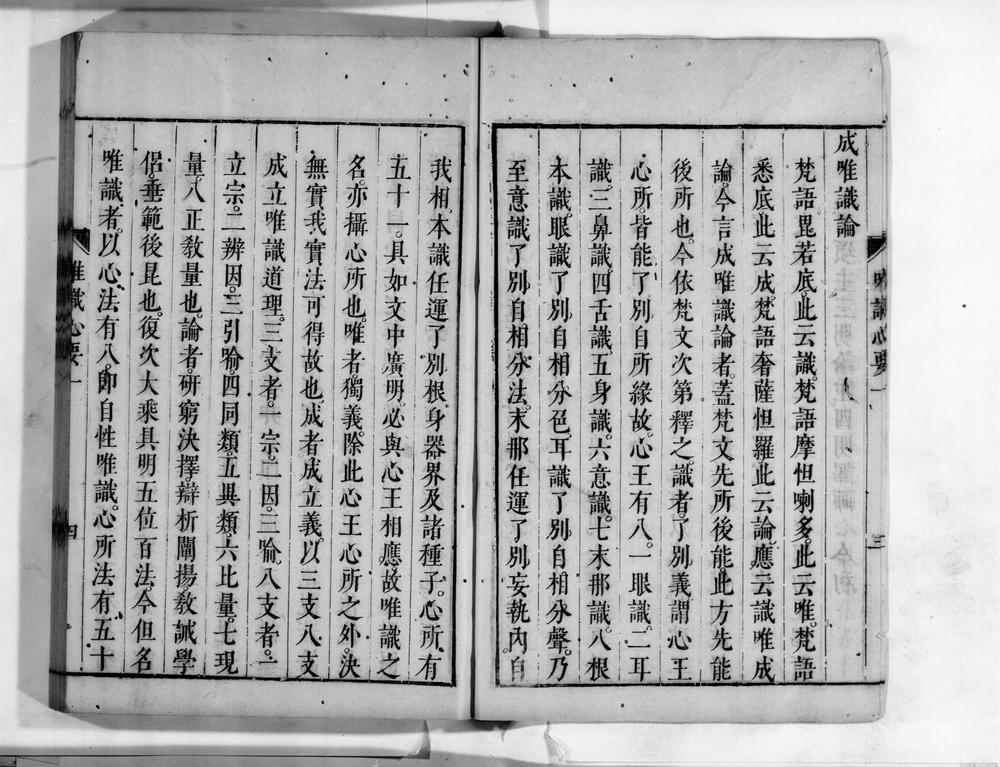 唯識心要一
三
成唯識論
梵語毘若底。此云識。梵語摩怛喇多。此云唯。梵語
悉底此云成。梵語奢薩怛羅。此云論。應云識唯成
論。今言成唯識論者。蓋梵文先所後能。此方先能
後所也。今依梵文次第釋之。識者。了別義。謂心王
心所皆能了別自所緣故。心王有八。一眼識。二耳
識。三鼻識。四舌識。五身識。六意識。七末那識。八根
本識。眼識了別自相分色。耳識了別自相分聲。乃
至意識了別自相分法。末那任運了別。妄執內自
我相。本識任運了別根身器界及諸種子。心所有
五十一。具如文中廣明。必與心王相應。故唯識之
名。亦攝心所也。唯者。獨義。除此心王心所之外。決
無實我實法可得故也。成者成立義。以三支八支
成立唯識道理。三支者。一宗。二因。三喻。八支者。一
立宗。二辨因。三引喻。四同類。五異類。六比量。七現
量。八正教量也。論者。研窮決擇。辯析闡揚。教誡學
侶。垂範後昆也。復次大乘具明五位百法。今但名
唯識者。以心法有八。卽自性唯識。心所法有五十
唯識心要一
四